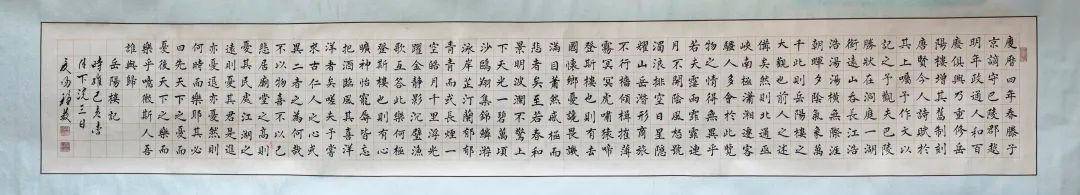 慶曆四年春滕子
京謫守巴陵郡越
明年政通人和百
廢俱興乃重修岳
陽樓增其舊制刻
唐賢今人詩賦於
其上囑予作文以
記之予觀夫巴陵
勝狀在洞庭一湖
銜遠山吞長江浩
浩湯湯橫無際涯
朝暉夕陰氣象萬
千此則岳陽樓之
大觀也前人之述
備矣然則北通巫
峽南極瀟湘遷客
騷人多會於此覽
物之情得無異乎
若夫霪雨霏霏連
月不開陰風怒號
濁浪排空日星隱
曜山岳潛形商旅
不行檣傾楫摧薄
暮冥冥虎嘯猿啼
登斯樓也則有去
國懷鄉憂讒畏譏
滿目蕭然感極而
悲者矣至若春和
景明波瀾不驚上
下天光一碧萬頃
沙鷗翔集錦鱗游
泳岸芷汀蘭郁郁
青青而或長煙一
空皓月千里浮光
躍金靜影沉璧漁
歌互答此樂何極
登斯樓也則有心
曠神怡寵辱皆忘
把酒臨風其喜洋
洋者矣嗟夫予嘗
求古仁人之心或
異二者之為何哉
不以物喜不以己
悲居廟堂之高則
憂其民處江湖之
遠則憂其君是進
亦憂退亦憂然則
何時而樂耶其必
曰先天下之憂而
憂後天下之樂而
樂乎噫微斯人吾
誰與歸
岳陽樓記
時維己亥
月下浣三日